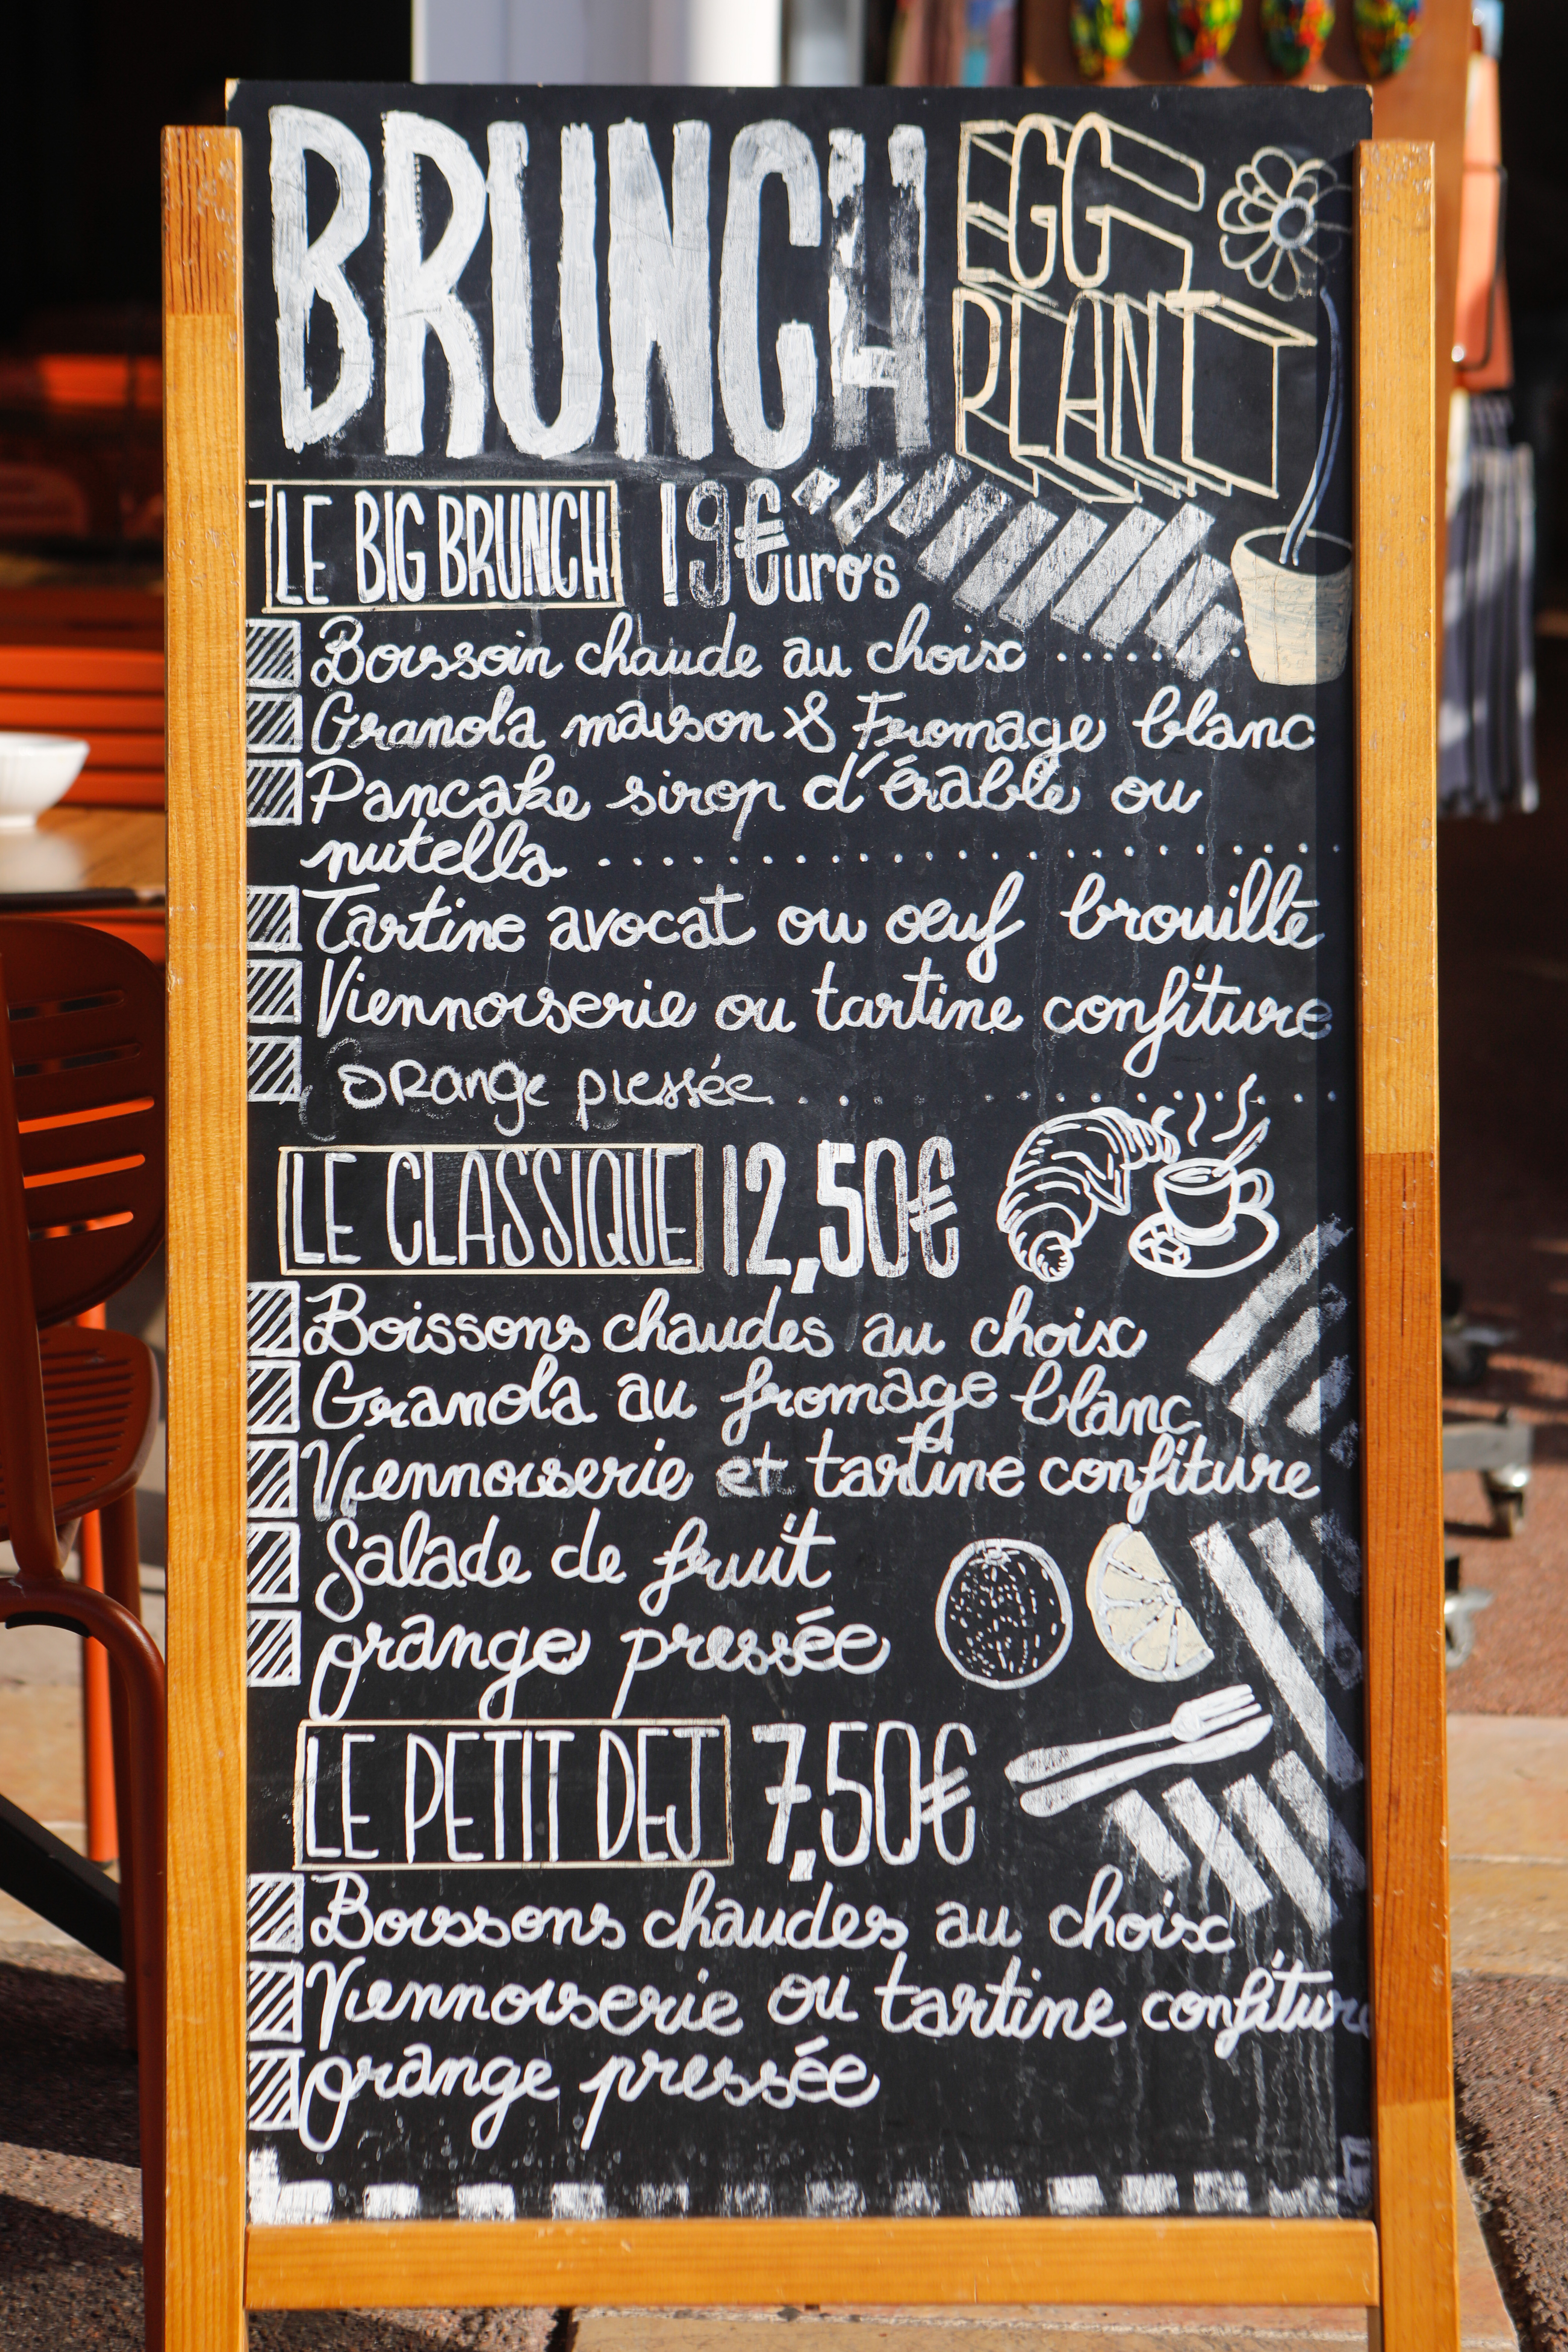 BRUNCH
EGG
PLANT
LE BIG BRUNCH 19€uro's
Boissoin chaude au choix ........
Granola maison & Fromage blanc
Pancake sirop d'érable ou
nutella ....................
Tartine avocat ou oeuf brouillé
Viennoiserie ou tartine confiture
orange pressée ............
LE CLASSIQUE 12,50€
Boissons chaudes au choix
Granola au fromage blanc
Viennoiserie et tartine confiture
Salade de fruit
orange pressée
LE PETIT DEJ 7,50€
Boissons chaudes au choix
Viennoiserie ou tartine confiture
orange pressée